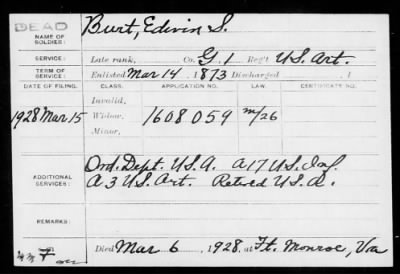 DEAD
NAME OF SOLDIER: Burt, Edwin S.
SERVICE: Late rank, Co. G. 1 Reg't U.S. Art.
TERM OF SERVICE: Enlisted Mar 14, 1873 Discharged , 1
DATE OF FILING. CLASS. APPLICATION NO. LAW. CERTIFICATE NO.
Invalid,
1928 Mar. 15 Widow, 1608059 m/26
Minor,
ADDITIONAL SERVICES: Ord. Dept. U.S.A. A 17 U.S. Inf.
A 3 U.S. Art. Retired U.S.A.
REMARKS:
Died Mar 6, 1928, at Ft. Monroe, Va